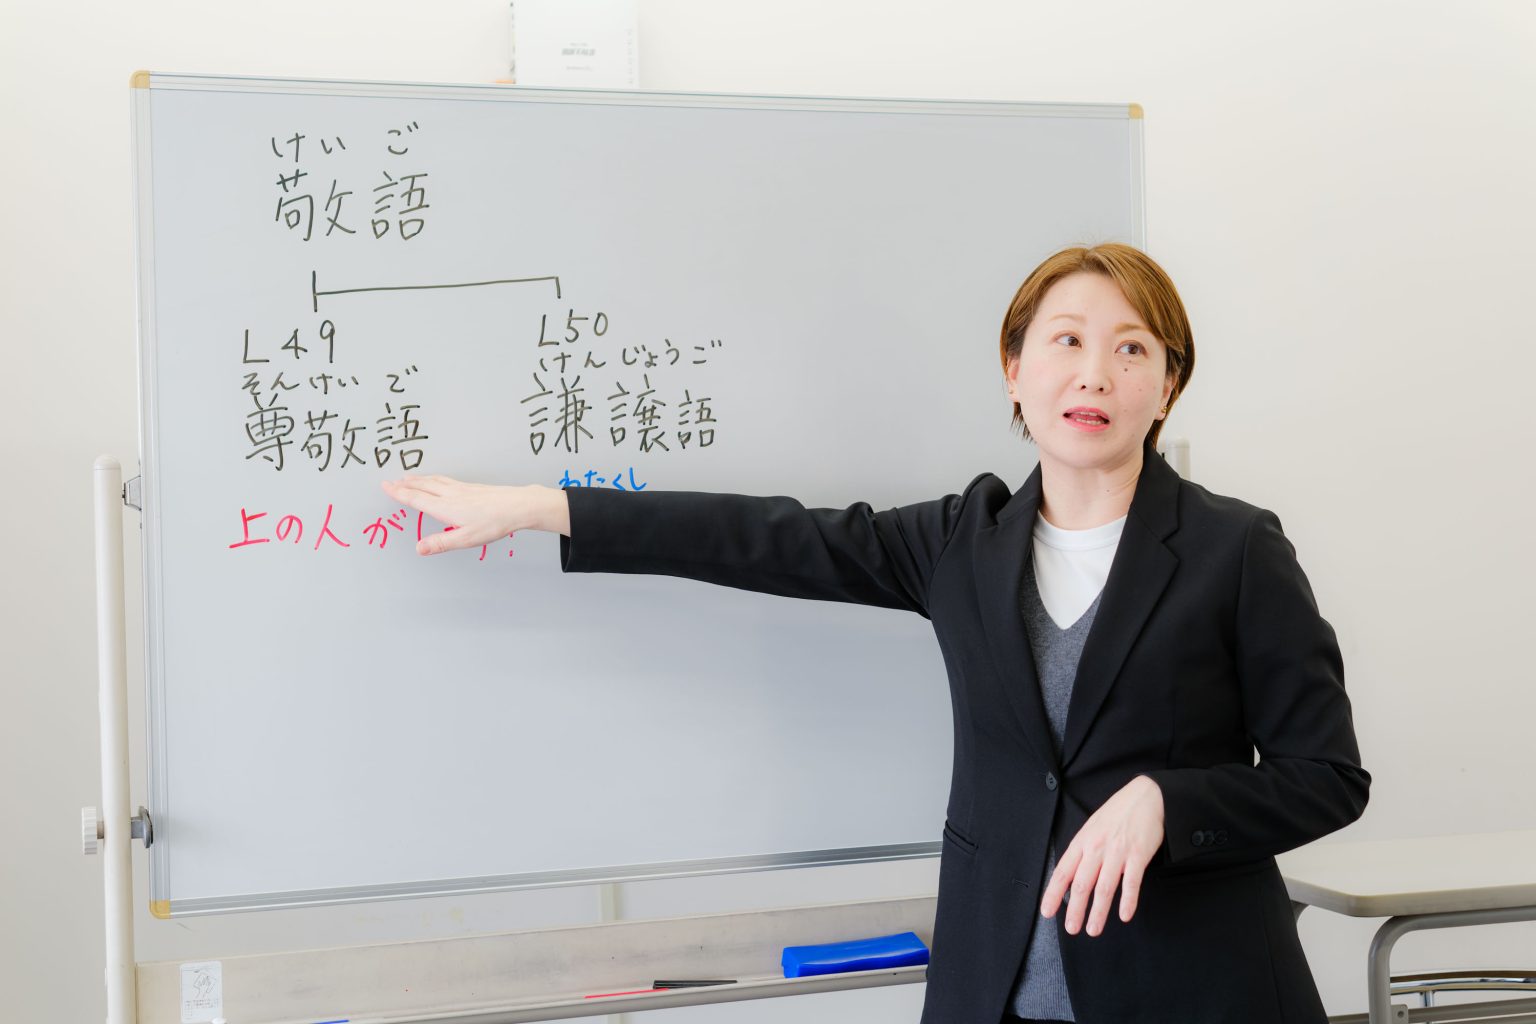 けいご
敬語
L49
そんけいご
尊敬語
上の人が
L50
けんじょうご
謙譲語
わたくし